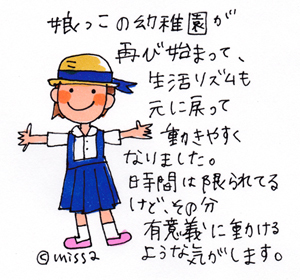 娘っこの幼稚園が
再び始まって、
生活リズムも
元に戻って
動きやすく
なりました。
時間は限られてる
けど、その分
有意義に動ける
ような気がします。
©missa